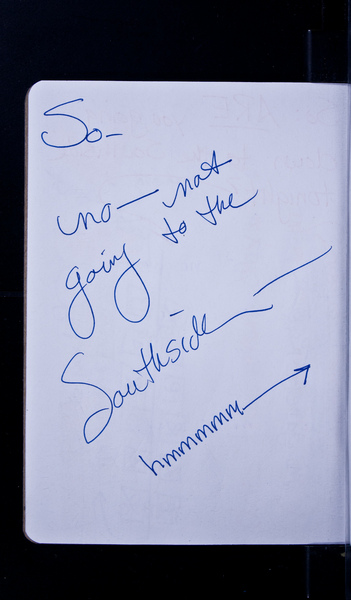 So-
no — not
going to the
Southside —
hmmmmmm →